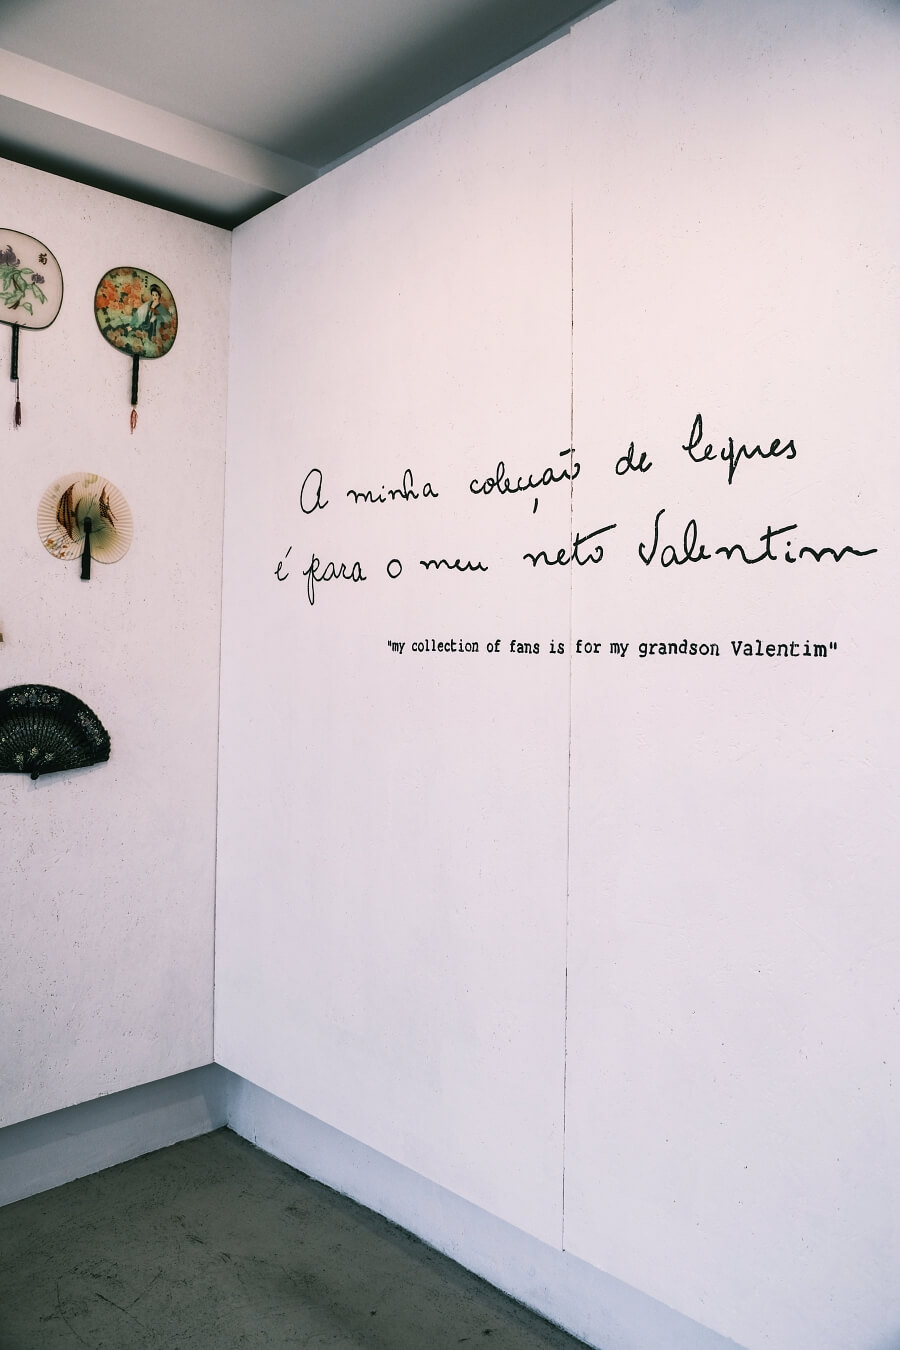 菊
A minha colecção de leques
é para o meu neto Valentim
"my collection of fans is for my grandson Valentim"